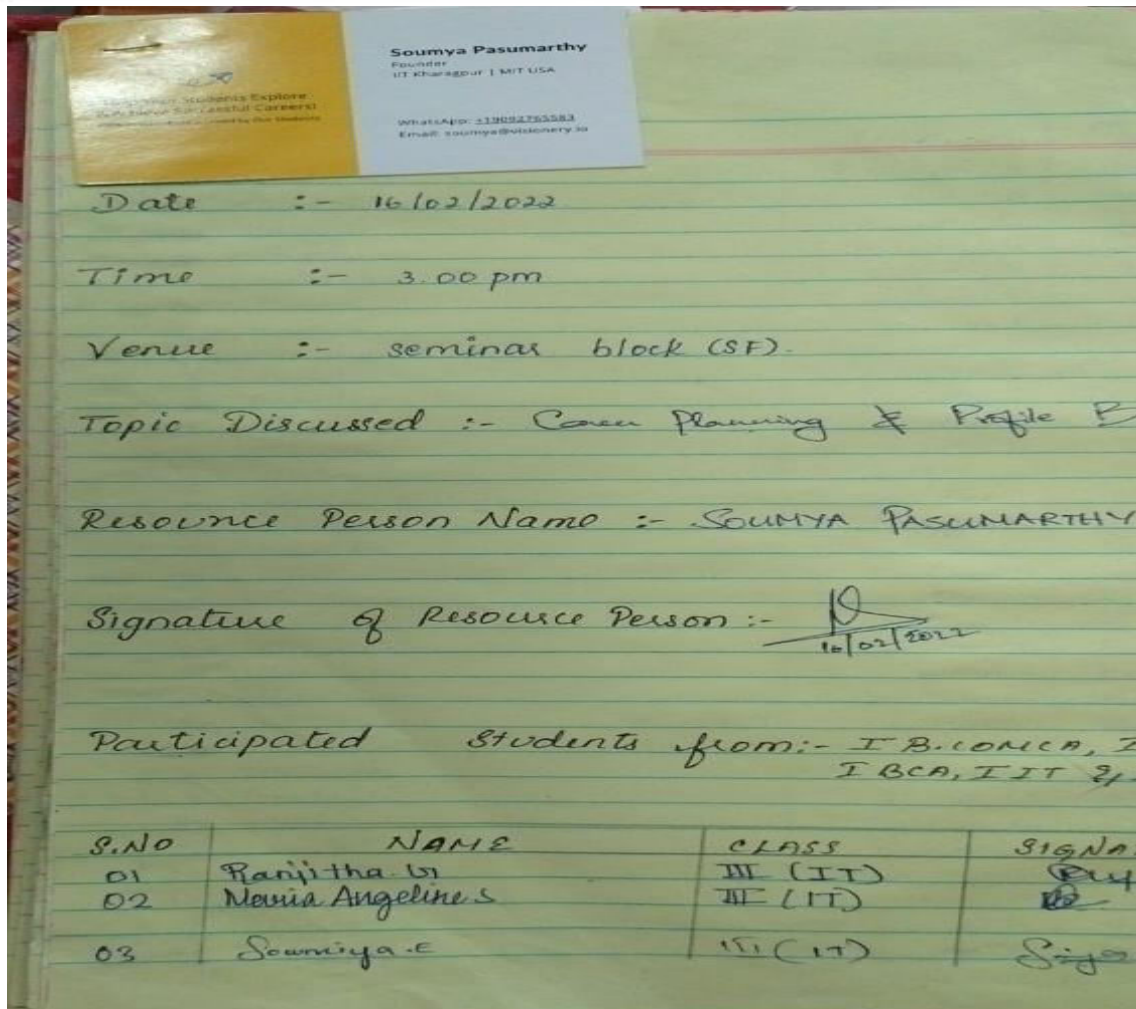 Students Explore
Successful Careers!
Soumya Pasumarthy
Founder
IIT Kharagpur | MIT USA
WhatsApp: +19092765583
Email: soumya@visionery.io
Date :- 16/02/2022
Time :- 3.00 pm
Venue :- seminar block (SF).
Topic Discussed :- Career Planning & Profile B
Resource Person Name :- SOUMYA PASUMARTHY
Signature of Resource Person :-
16/02/2022
Participated students from:- I B.COMCA, I
I BCA, I IT &
S.NO NAME CLASS SIGNA
01 Ranjitha. G III (IT)
02 Maria Angeline S III (IT)
03 Sowmiya .E III (IT)